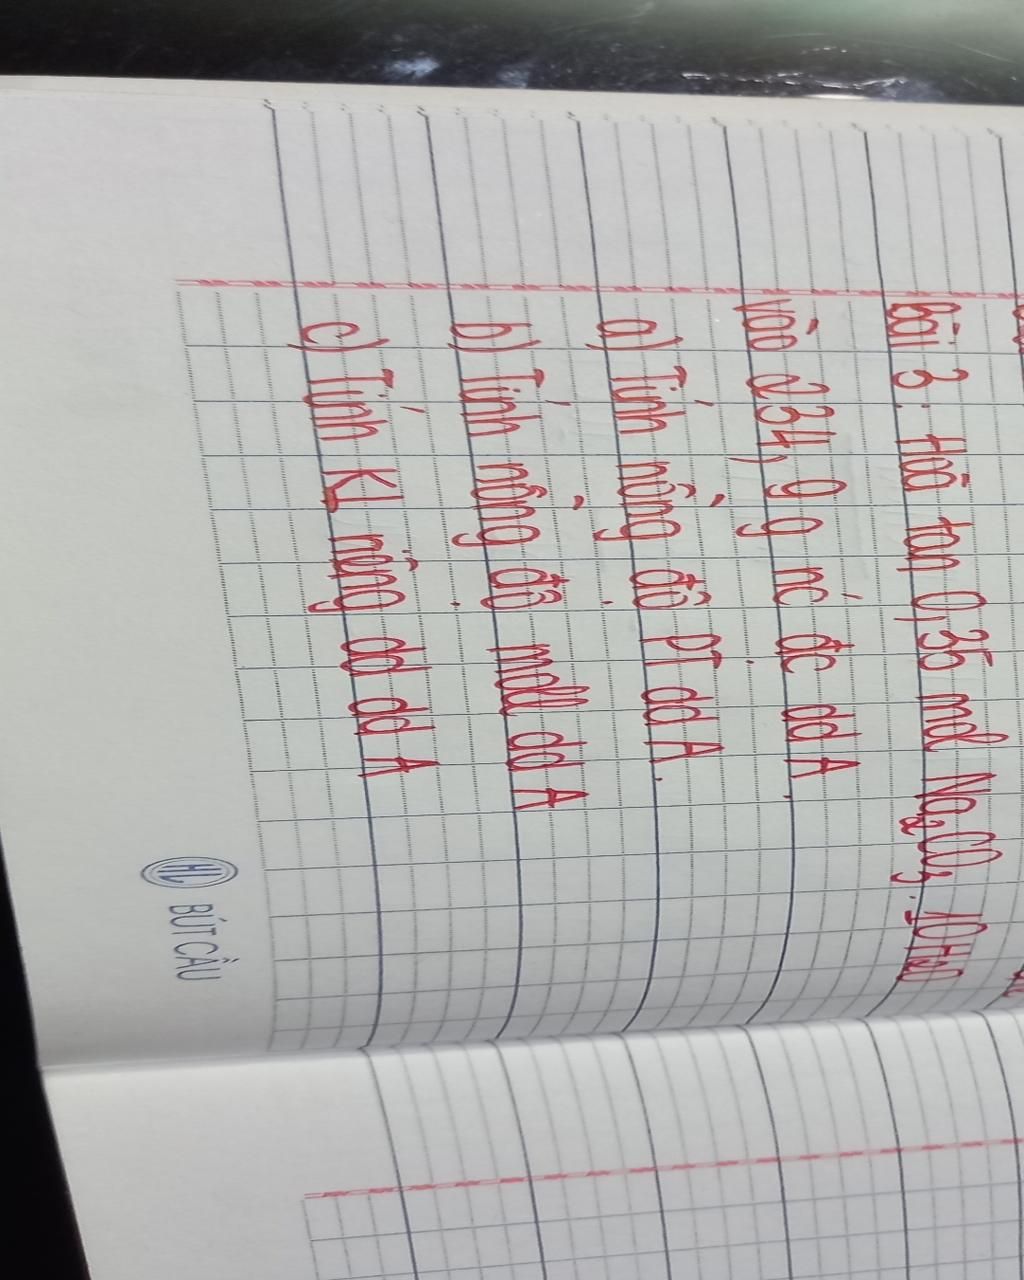 Bài 3: Hoà tan 0,35 mol Na2CO3.10H2O
vào 234,9 g nc đc dd A.
a) Tính nồng độ PT dd A.
b) Tính nồng độ moll dd A
c) Tính KL nồng dd dd A
HL BÚT CẦU